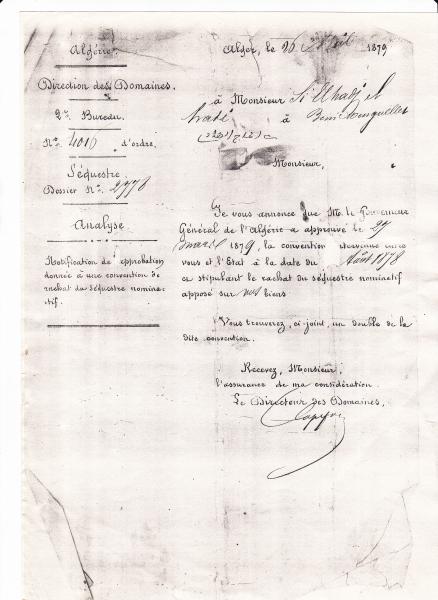 Algérie.
Direction des Domaines.
2e. Bureau.
No. 4016 d'ordre.
Séquestre
Dossier No. 2778
Analyse
Notification de l'approbation
donnée à une convention de
rachat du séquestre nomina-
tif.
Alger, le 26 1879
à Monsieur Si El Hadj el
à Beni
Monsieur,
Je vous annonce que M. le Gouverneur
Général de l'Algérie a approuvé le 27
mars 1879, la convention intervenue entre
vous et l'État à la date du Août 1878
et stipulant le rachat du séquestre nominatif
apposé sur vos biens
Vous trouverez, ci joint, un double de la
dite convention.
Recevez, Monsieur,
l'assurance de ma considération.
Le Directeur des Domaines,